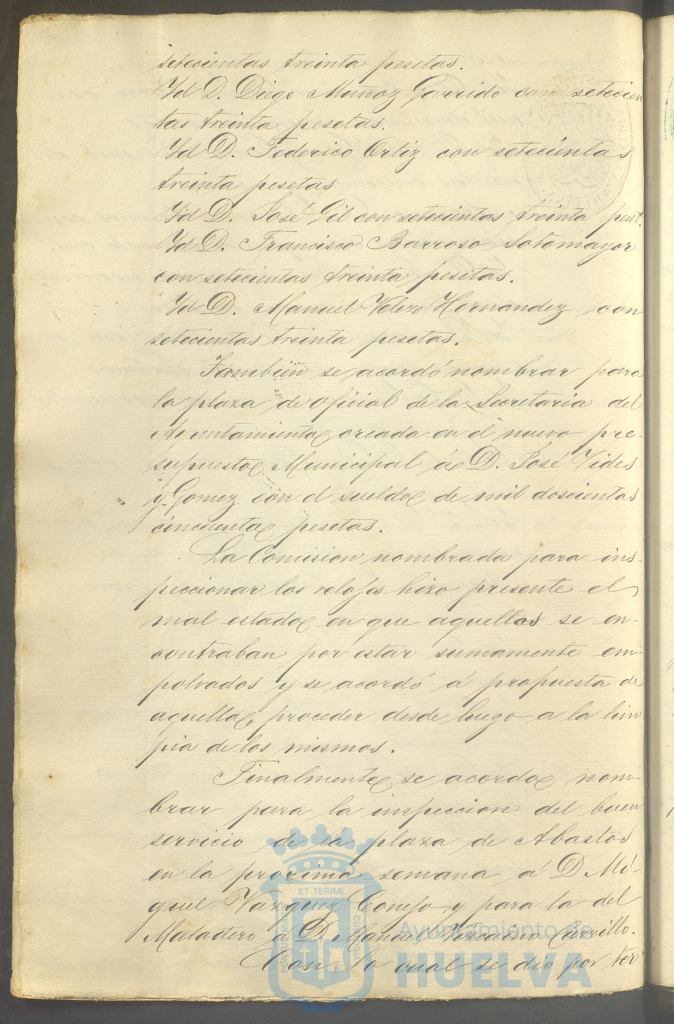 setecientas treinta pesetas.
Yd D. Diego Muñoz Garrido con setecien
tas treinta pesetas.
Yd D. Federico Ortiz con setecientas
treinta pesetas
Yd D. José Gil con setecientas treinta peset.
Yd D. Francisco Barroso Sotomayor
con setecientas treinta pesetas.
Yd D. Manuel Hernandez con
setecientas treinta pesetas.
Tambien se acordó nombrar para
la plaza de oficial de la Secretaria del
Ayuntamiento creada en el nuevo pre-
supuesto Municipal á D. José Vides
y Gomez con el sueldo de mil doscientas
cincuenta pesetas.
La Comision nombrada para ins-
peccionar los relojes hizo presente el
mal estado en que aquellos se en-
contraban por estar sumamente em-
polvados y se acordó á propuesta de
aquella, proceder desde luego a la lim
pia de los mismos.
Finalmente se acordo nom-
brar para la inspeccion del buen
servicio de la plaza de Abastos
en la proxima semana á D Mi-
guel Vazquez Conejo y para la del
Matadero á D Manuel Carrillo.
Con lo cual se dio por ter
ET TERRÆ
Ayuntamiento de
HUELVA